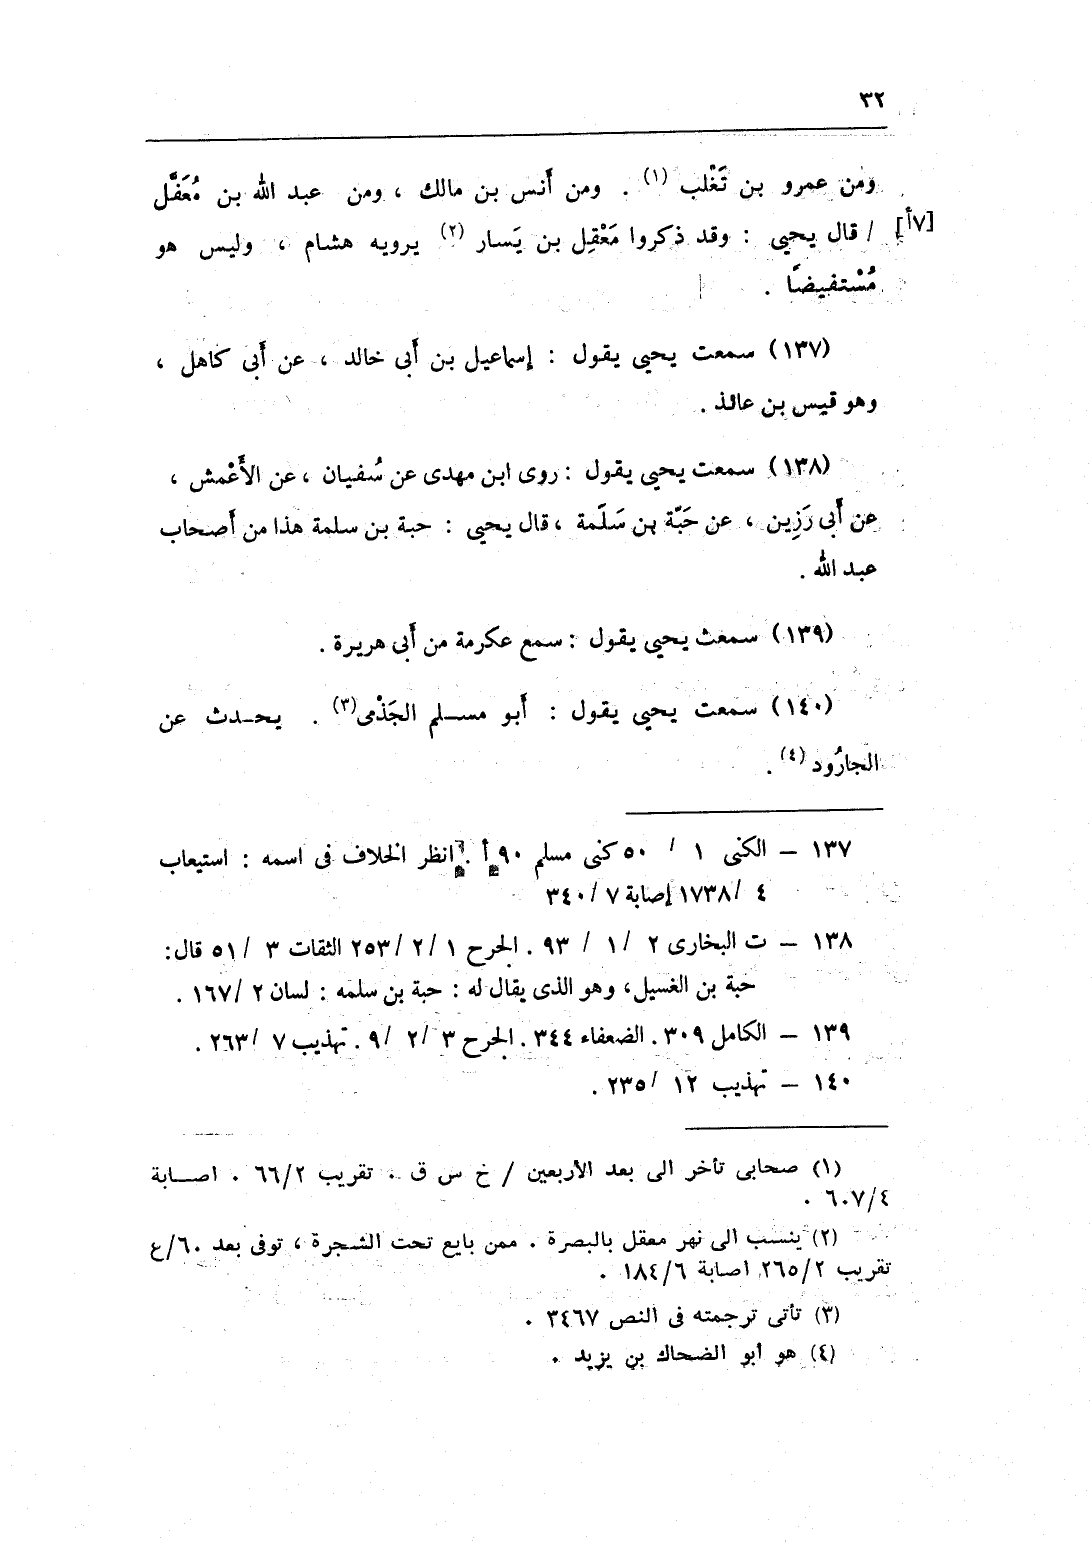 ٣٢
ومن عمرو بن تَغْلب (١) . ومن أَنس بن مالك ، ومن عبد الله بن مُغَفَّل
[٧أ] / قال يحيى : وقد ذكروا مَعْقِل بن يَسار (٢) يرويه هشام ، وليس هو
مُسْتفيضًا .
(١٣٧) سمعت يحيى يقول : إسماعيل بن أَبى خالد ، عن أَبى كاهل ،
وهو قيس بن عائذ .
(١٣٨) سمعت يحيى يقول : روى ابن مهدى عن سُفيان ، عن الأَعْمش ،
عن أَبى رَزِين ، عن حَبّة بن سَلَمة ، قال يحيى : حبة بن سلمة هذا من أَصحاب
عبد الله .
(١٣٩) سمعت يحيى يقول : سمع عكرمة من أَبى هريرة .
(١٤٠) سمعت يحيى يقول : أَبو مسلم الجَذْمى (٣) . يحدث عن
الجارُود (٤) .
١٣٧ – الكنى ١ / ٥٠ كنى مسلم ٩٠ أ . انظر الخلاف فى اسمه : استيعاب
٤ /١٧٣٨ إصابة ٧ /٣٤٠
١٣٨ – ت البخارى ٢ /١ / ٩٣ . الجرح ١ /٢ /٢٥٣ الثقات ٣ /٥١ قال:
حبة بن الغسيل، وهو الذى يقال له : حبة بن سلمه : لسان ٢ /١٦٧ .
١٣٩ – الكامل ٣٠٩ . الضعفاء ٣٤٤ . الجرح ٣ /٢ /٩ . تهذيب ٧ /٢٦٣ .
١٤٠ – تهذيب ١٢ /٢٣٥ .
(١) صحابى تأخر الى بعد الأربعين / خ س ق . تقريب ٦٦/٢ . اصابة
٦٠٧/٤ .
(٢) ينسب الى نهر معقل بالبصرة . ممن بايع تحت الشجرة ، توفى بعد ٦٠/ع
تقريب ٢٦٥/٢ اصابة ١٨٤/٦ .
(٣) تأتى ترجمته فى النص ٣٤٦٧ .
(٤) هو أبو الضحاك بن يزيد .